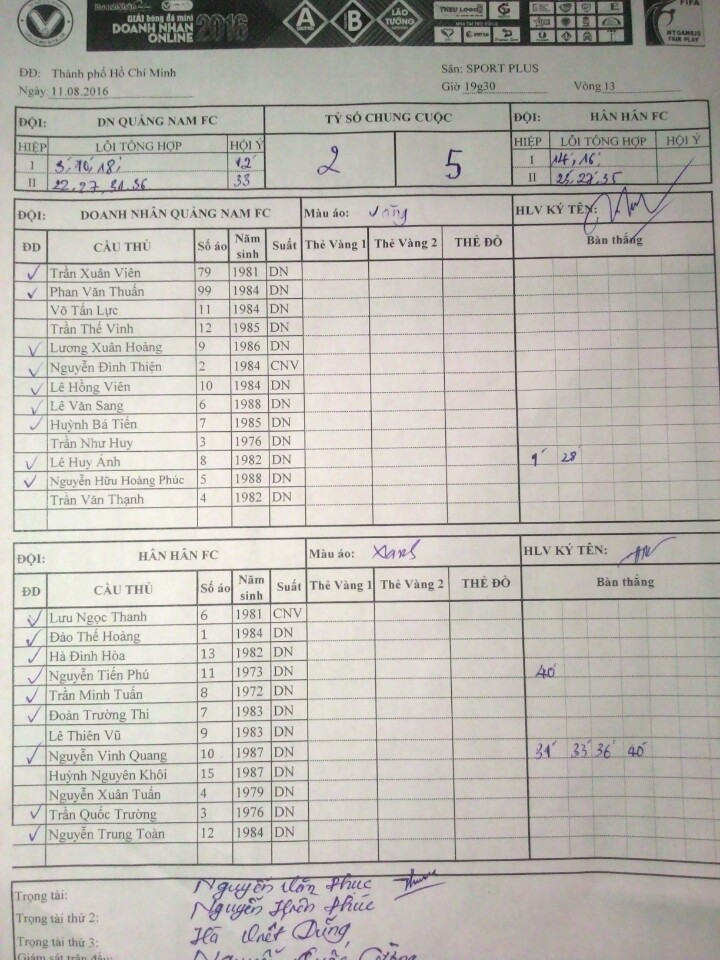 GIẢI bóng đá mini
DOANH NHÂN 2016
ONLINE
A B LÃO TƯỚNG
FIFA
MY GAME IS FAIR PLAY
ĐĐ: Thành phố Hồ Chí Minh Sân: SPORT PLUS
Ngày 11.08.2016 Giờ 19g30 Vòng 13
ĐỘI: DN QUẢNG NAM FC TỶ SỐ CHUNG CUỘC ĐỘI: HÂN HÂN FC
HIỆP LỖI TỔNG HỢP HỘI Ý 2 5 HIỆP LỖI TỔNG HỢP HỘI Ý
I 3, 10, 18, 12 I 14, 16,
II 22, 27, 31, 36 33 II 25, 27, 35
ĐỘI: DOANH NHÂN QUẢNG NAM FC Màu áo: vàng HLV KÝ TÊN:
ĐD CẦU THỦ Số áo Năm sinh Suất Thẻ Vàng 1 Thẻ Vàng 2 THẺ ĐỎ Bàn thắng
✓ Trần Xuân Viên 79 1981 DN
✓ Phan Văn Thuấn 99 1984 DN
Võ Tấn Lực 11 1984 DN
Trần Thế Vinh 12 1985 DN
✓ Lương Xuân Hoàng 9 1986 DN
✓ Nguyễn Đình Thiện 2 1984 CNV
✓ Lê Hồng Viên 10 1984 DN
✓ Lê Văn Sang 6 1988 DN
✓ Huỳnh Bá Tiến 7 1985 DN
Trần Như Huy 3 1976 DN
✓ Lê Huy Ánh 8 1982 DN 9' 28'
✓ Nguyễn Hữu Hoàng Phúc 5 1988 DN
Trần Văn Thạnh 4 1982 DN
ĐỘI: HÂN HÂN FC Màu áo: xanh HLV KÝ TÊN:
ĐD CẦU THỦ Số áo Năm sinh Suất Thẻ Vàng 1 Thẻ Vàng 2 THẺ ĐỎ Bàn thắng
✓ Lưu Ngọc Thanh 6 1981 CNV
✓ Đào Thế Hoàng 1 1984 DN
✓ Hà Đình Hòa 13 1982 DN
✓ Nguyễn Tiến Phú 11 1973 DN 40'
✓ Trần Minh Tuấn 8 1972 DN
✓ Đoàn Trường Thi 7 1983 DN
Lê Thiên Vũ 9 1983 DN
✓ Nguyễn Vinh Quang 10 1987 DN 31' 33' 36' 40'
Huỳnh Nguyên Khôi 15 1987 DN
Nguyễn Xuân Tuấn 4 1979 DN
✓ Trần Quốc Trường 3 1976 DN
✓ Nguyễn Trung Toàn 12 1984 DN
Trọng tài: Nguyễn Văn Phúc
Trọng tài thứ 2: Nguyễn Hiền Phúc
Trọng tài thứ 3: Hà Việt Dũng
Giám sát trận đấu: Nguyễn Quốc